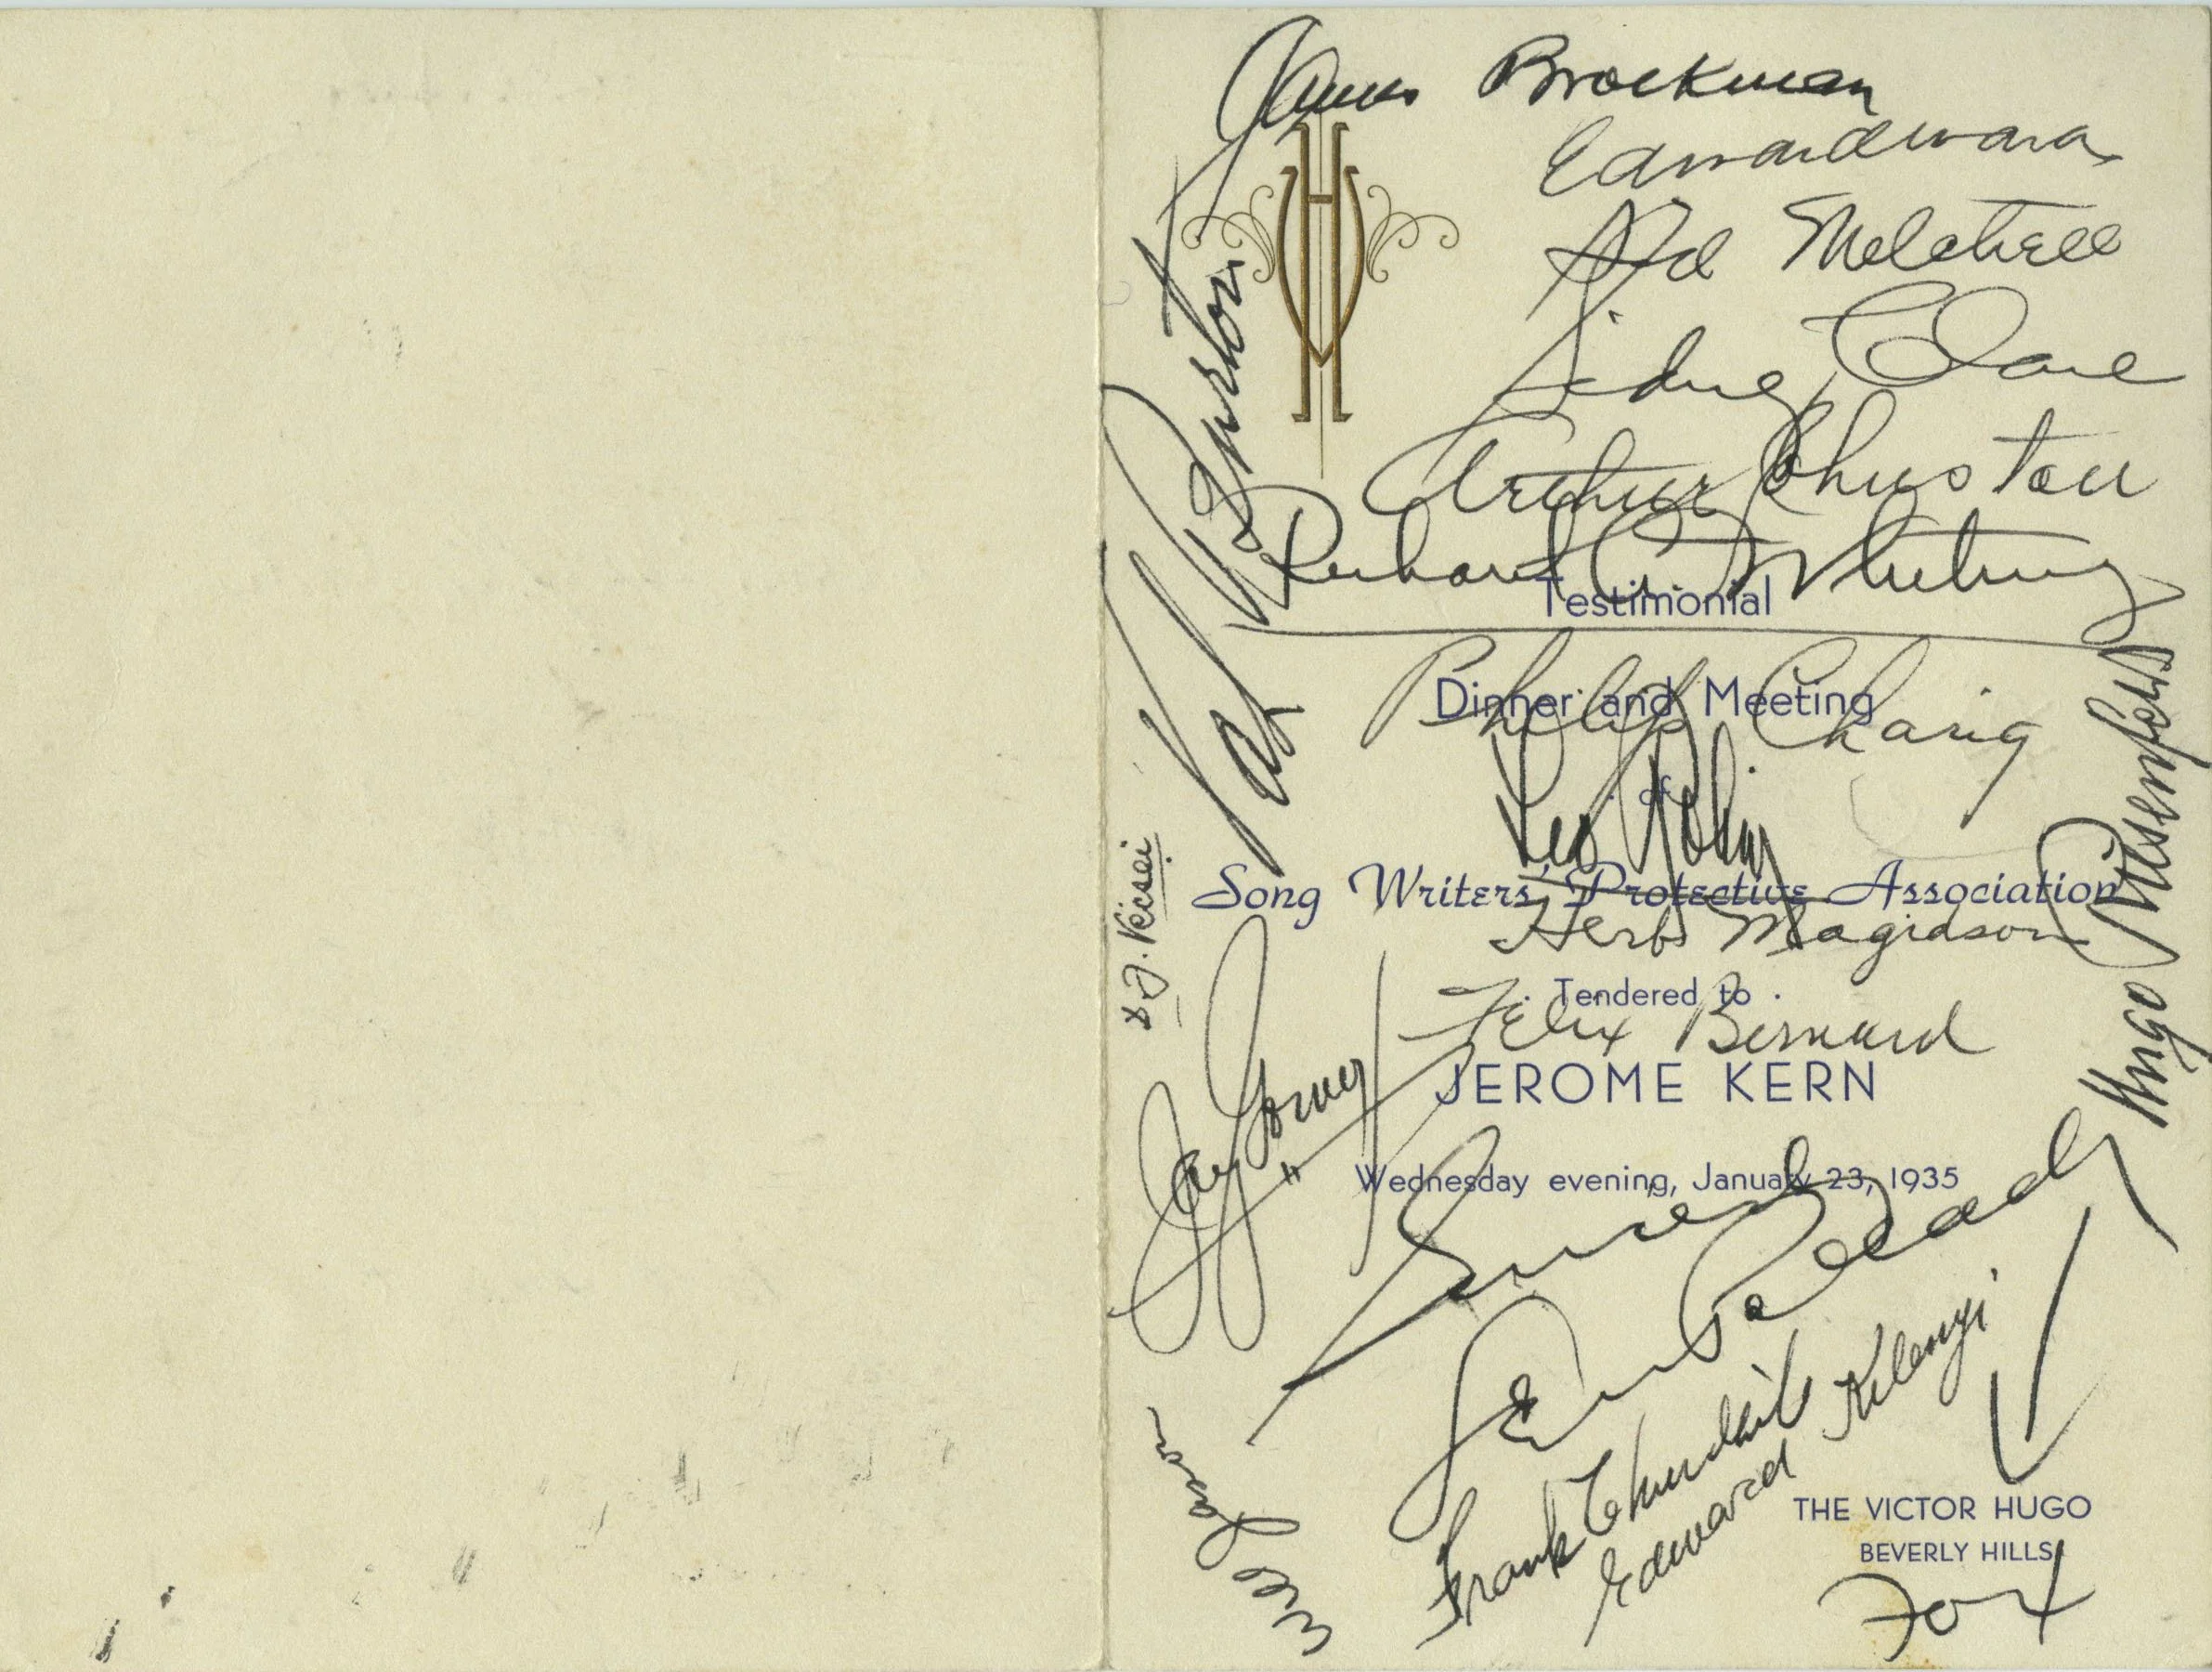 James Brockman
Edward Ward
Sid Mitchell
Sidney Clare
Arthur Johnston
Richard A. Whiting
Testimonial
Philip Charig
Dinner and Meeting
Leo Robin
of
Song Writers' Protective Association
Herb Magidson
Tendered to
Felix Bernard
JEROME KERN
Wednesday evening, January 23, 1935
Jay Gorney
Val Burton
Hugo Riesenfeld
Frank Churchill
Edward Kilenyi
THE VICTOR HUGO
BEVERLY HILLS